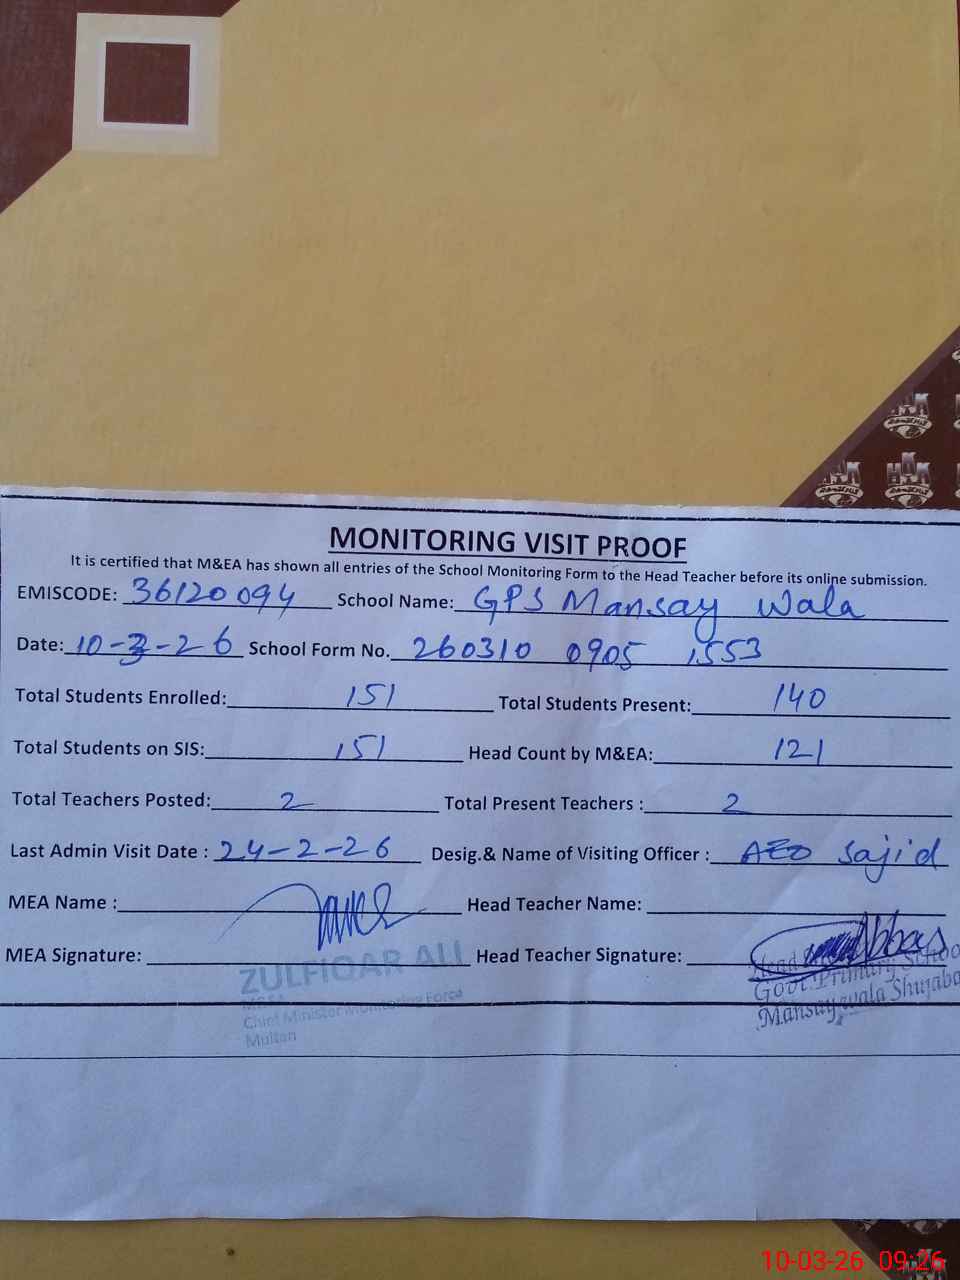 MONITORING VISIT PROOF
It is certified that M&EA has shown all entries of the School Monitoring Form to the Head Teacher before its online submission.
EMISCODE: 36120094 School Name: GPS Mansay Wala
Date: 10-3-26 School Form No. 260310 0905 1553
Total Students Enrolled: 151 Total Students Present: 140
Total Students on SIS: 151 Head Count by M&EA: 121
Total Teachers Posted: 2 Total Present Teachers : 2
Last Admin Visit Date : 24-2-26 Desig.& Name of Visiting Officer : AEO Sajid
MEA Name : Head Teacher Name:
MEA Signature: Head Teacher Signature: Abbas
ZULFIQAR ALI
Chief Minister Monitoring Force
Multan
Head
Govt. Primary School
Mansay wala Shujaba
10-03-26 09:26